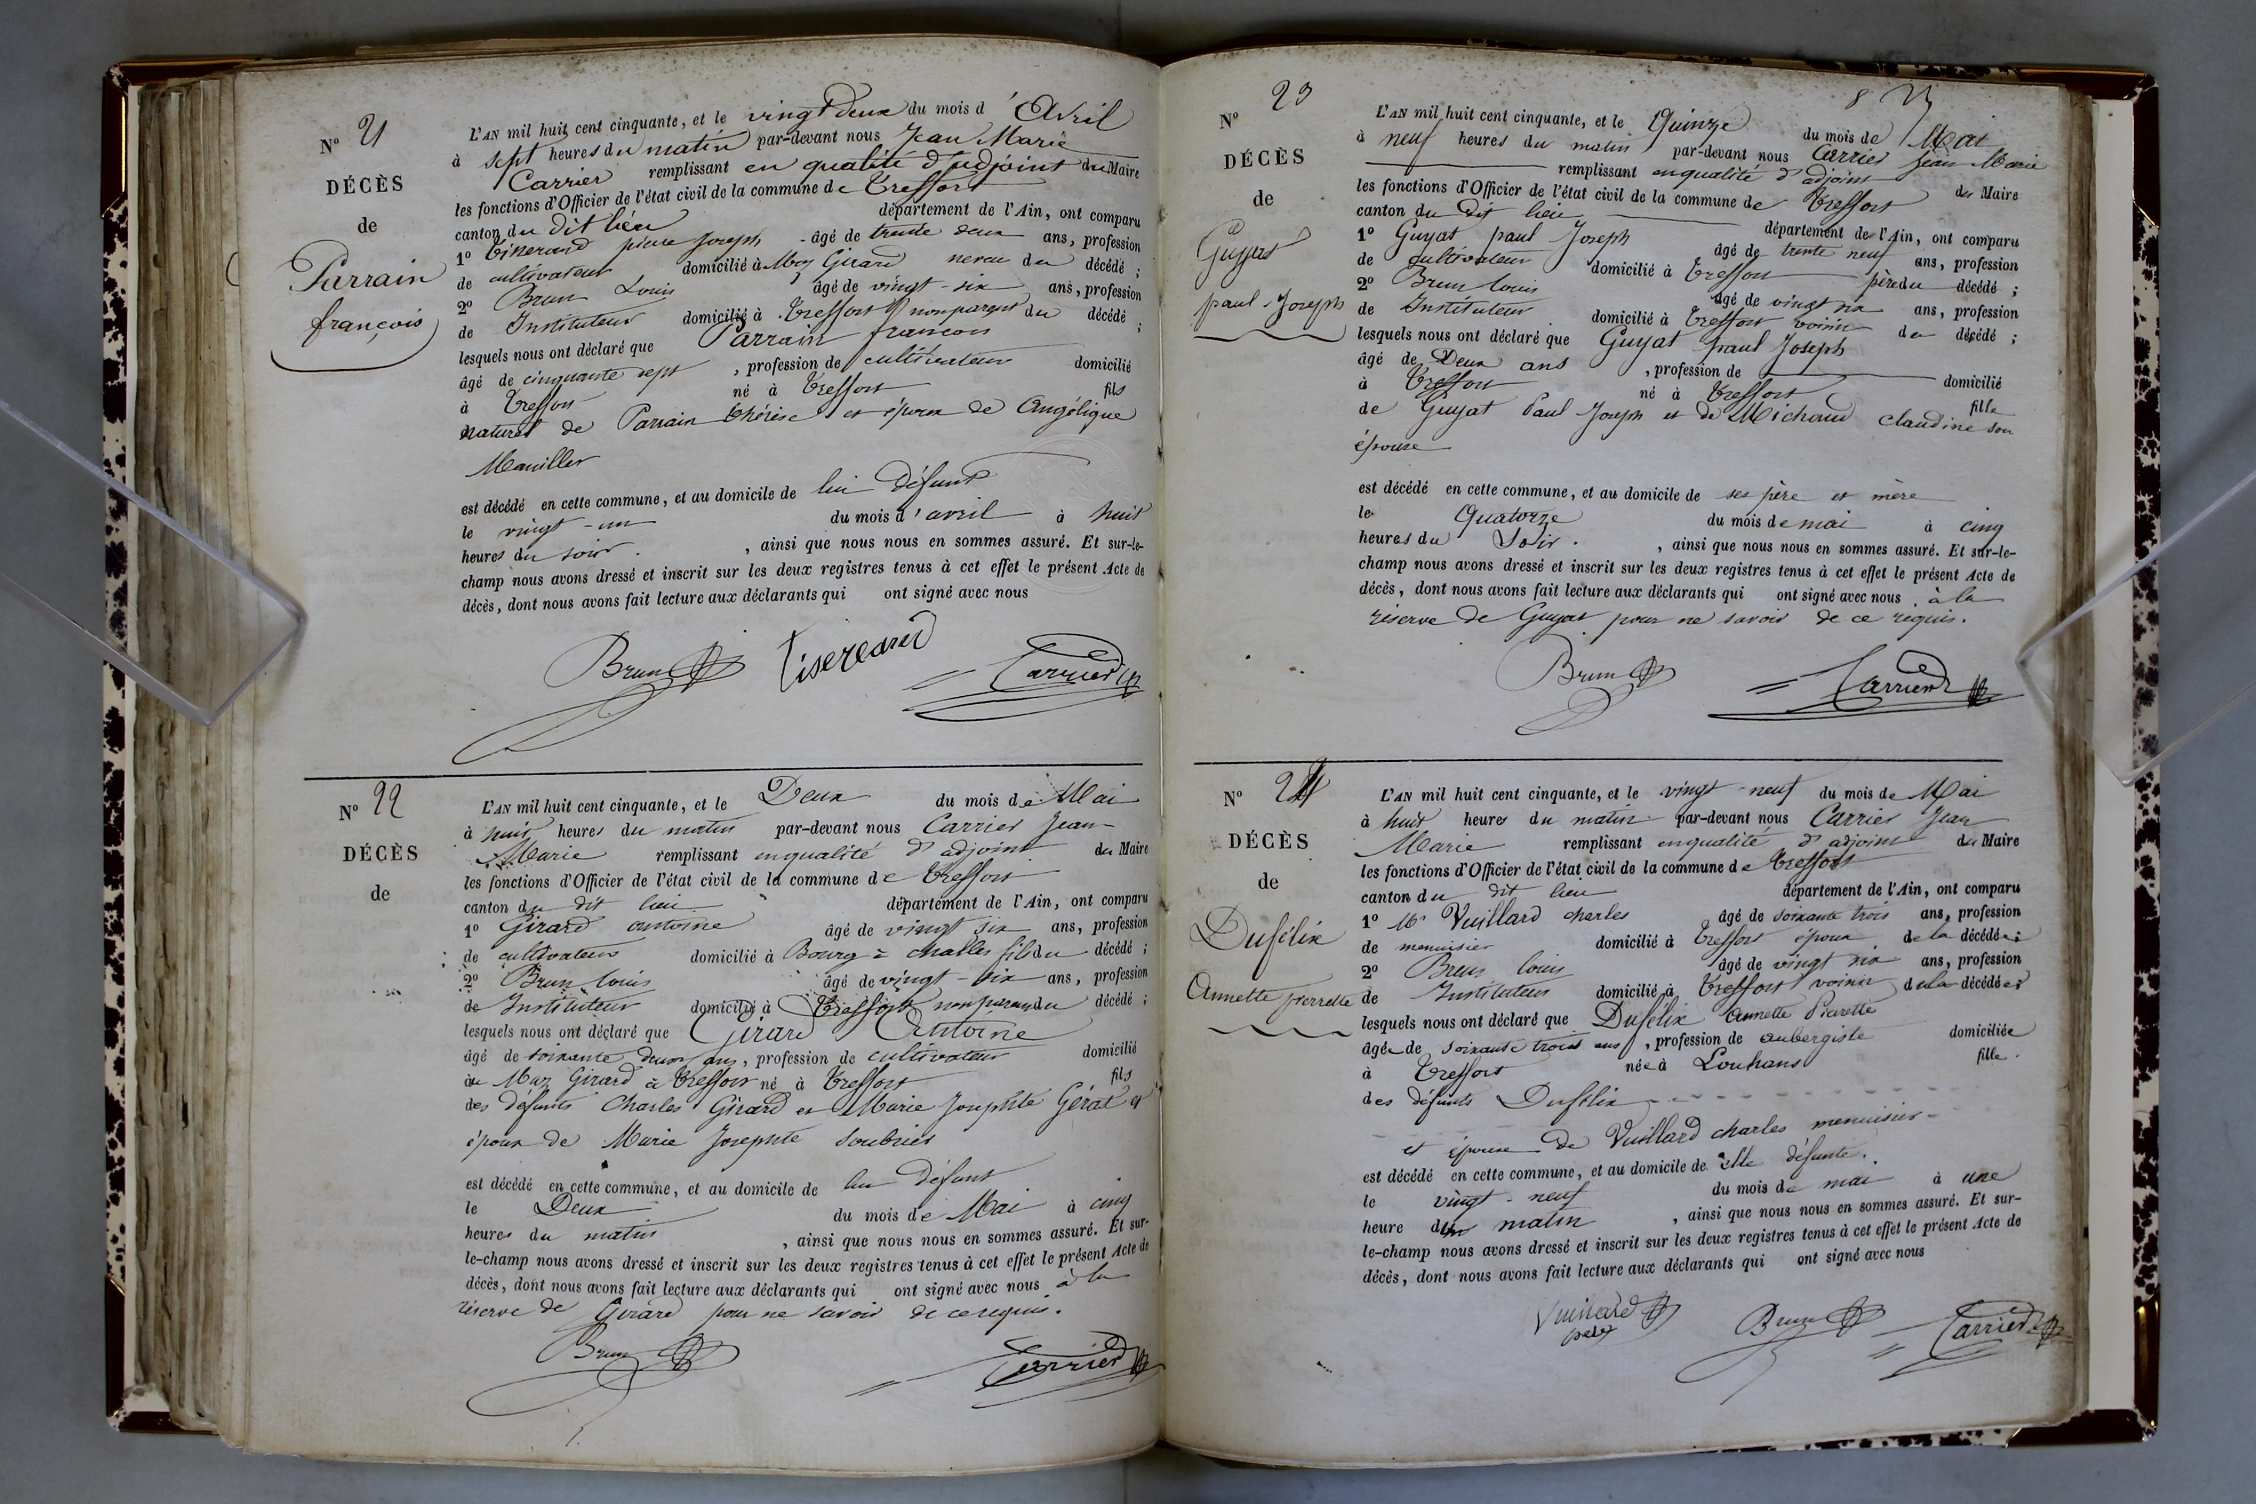 N° 21
DÉCÈS
de
Parrain
françois
L'AN mil huit cent cinquante, et le vingt deux du mois d'Avril
à sept heures du matin par-devant nous Jean Marie
Carrier remplissant en qualité d'adjoint du Maire
les fonctions d'Officier de l'état civil de la commune de Treffort
canton du dit lieu département de l'Ain, ont comparu
1° Tisserand pierre Joseph âgé de trente deux ans, profession
de cultivateur domicilié à Maz Girard neveu du décédé ;
2° Brun Louis âgé de vingt-six ans, profession
de Instituteur domicilié à Treffort non parent du décédé ;
lesquels nous ont déclaré que Parrain françois
âgé de cinquante sept , profession de cultivateur domicilié
à Treffort né à Treffort fils
naturel de Parrain thérèse et époux de Angélique
Maniller
est décédé en cette commune, et au domicile de lui défunt
le vingt-un du mois d'avril à huit
heures du soir. , ainsi que nous nous en sommes assuré. Et sur-le-
champ nous avons dressé et inscrit sur les deux registres tenus à cet effet le présent Acte de
décès, dont nous avons fait lecture aux déclarants qui ont signé avec nous
Brun Tisserand Carrier
N° 22
DÉCÈS
de
L'AN mil huit cent cinquante, et le Deux du mois de Mai
à huit heures du matin par-devant nous Carrier Jean
Marie remplissant en qualité d'adjoint du Maire
les fonctions d'Officier de l'état civil de la commune de Treffort
canton du dit lieu département de l'Ain, ont comparu
1° Girard antoine âgé de vingt six ans, profession
de cultivateur domicilié à Bourg à challes fils du décédé ;
2° Brun louis âgé de vingt-six ans, profession
de Instituteur domicilié à Treffort non parent du décédé ;
lesquels nous ont déclaré que Girard Antoine
âgé de soixante deux ans, profession de cultivateur domicilié
au Maz Girard à Treffort né à Treffort fils
des défunts Charles Girard et Marie Josephte Gérat et
époux de Marie Josephte Soubrier
est décédé en cette commune, et au domicile de lui défunt
le Deux du mois de Mai à cinq
heures du matin , ainsi que nous nous en sommes assuré. Et sur-
le-champ nous avons dressé et inscrit sur les deux registres tenus à cet effet le présent Acte de
décès, dont nous avons fait lecture aux déclarants qui ont signé avec nous à la
réserve de Girard pour ne savoir de ce requis.
Brun Carrier
8
N° 23
DÉCÈS
de
Guyat
paul-Joseph
L'AN mil huit cent cinquante, et le Quinze du mois de Mai
à neuf heures du matin par-devant nous Carrier Jean Marie
remplissant en qualité d'adjoint du Maire
les fonctions d'Officier de l'état civil de la commune de Treffort
canton du dit lieu département de l'Ain, ont comparu
1° Guyat paul Joseph âgé de trente neuf ans, profession
de cultivateur domicilié à Treffort père du décédé ;
2° Brun louis âgé de vingt six ans, profession
de Instituteur domicilié à Treffort voisin du décédé ;
lesquels nous ont déclaré que Guyat paul Joseph
âgé de Deux ans , profession de domicilié
à Treffort né à Treffort fille
de Guyat Paul Joseph et de Michoud claudine son
épouse
est décédé en cette commune, et au domicile de ses père et mère
le Quatorze du mois de mai à cinq
heures du Soir. , ainsi que nous nous en sommes assuré. Et sur-le-
champ nous avons dressé et inscrit sur les deux registres tenus à cet effet le présent Acte de
décès, dont nous avons fait lecture aux déclarants qui ont signé avec nous à la
réserve de Guyat pour ne savoir de ce requis.
Brun Carrier
N° 24
DÉCÈS
de
Dufélix
Annette pierrette
L'AN mil huit cent cinquante, et le vingt-neuf du mois de Mai
à huit heures du matin par-devant nous Carrier Jean
Marie remplissant en qualité d'adjoint du Maire
les fonctions d'Officier de l'état civil de la commune de Treffort
canton du dit lieu département de l'Ain, ont comparu
1° Mr Vuillard charles âgé de soixante trois ans, profession
de menuisier domicilié à Treffort époux de la décédée ;
2° Brun louis âgé de vingt six ans, profession
de Instituteur domicilié à Treffort voisin de la décédée ;
lesquels nous ont déclaré que Dufélix Annette Pierette
âgée de soixante trois ans , profession de aubergiste domiciliée
à Treffort née à Louhans fille
des défunts Dufélix
et épouse de Vuillard charles menuisier
est décédé en cette commune, et au domicile de elle défunte.
le vingt-neuf du mois de mai à une
heure du matin , ainsi que nous nous en sommes assuré. Et sur-
le-champ nous avons dressé et inscrit sur les deux registres tenus à cet effet le présent Acte de
décès, dont nous avons fait lecture aux déclarants qui ont signé avec nous
Vuillard Brun Carrier